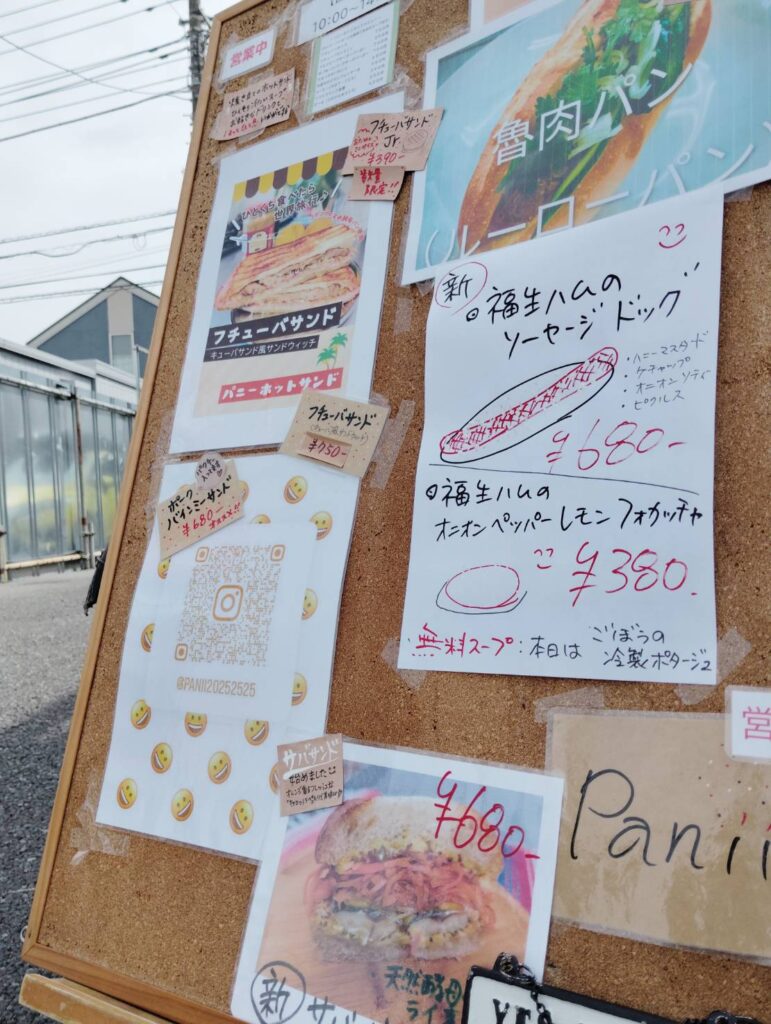 10:00~14
営業中
フチューバサンド
Jr.
¥390-
数量
限定!!
ひとくち食べたら
世界旅行♪
フチューバサンド
キューバサンド風サンドウィッチ
パニーホットサンド
フチューバサンド
¥750-
魯肉パン
ルーローパン
新
福生ハムの
ソーセージドッグ
・ハニーマスタード
・ケチャップ
・オニオンソティ
・ピクルス
¥680-
福生ハムの
オニオンペッパーレモンフォカッチャ
¥380.
無料スープ:本日は ごぼうの
冷製ポタージュ
ポーク
バインミーサンド
¥680-
オススメ!!
@PANII20252525
サバサンド
始めました
¥680-
新
サバ
天然酵母
ライ麦
Panii
営
YES